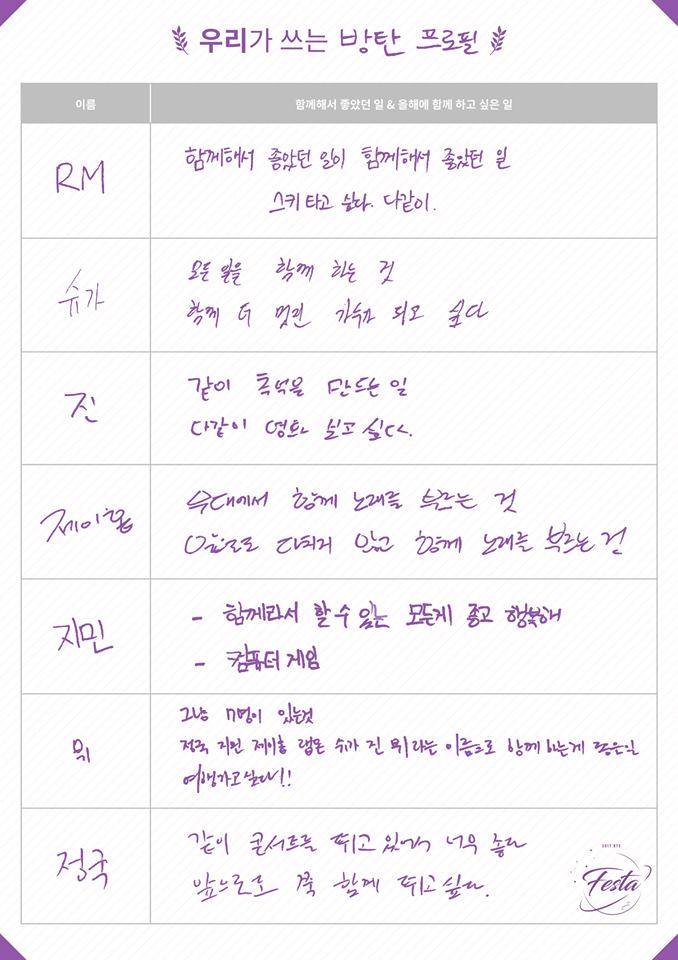 우리가 쓰는 방탄 프로필
이름
함께해서 좋았던 일 & 올해에 함께 하고 싶은 일
RM
함께해서 좋았던 일이 함께해서 좋았던 일
스키 타고 싶다. 다같이.
슈가
모든 일을 함께 하는 것
함께 더 멋진 가수가 되고 싶다
진
같이 추억을 만드는 일
다같이 영화 보고 싶다.
제이홉
무대에서 함께 노래를 부르는 것
앞으로도 다치지 않고 함께 노래를 부르는 것
지민
- 함께라서 할 수 있는 모든게 좋고 행복해
- 컴퓨터 게임
뷔
그냥 7명이 있는것
정국 지민 제이홉 랩몬 슈가 진 뷔라는 이름으로 함께 하는게 좋은일
여행가고싶다!!
정국
같이 콘서트를 뛰고 있어서 너무 좋다
앞으로도 쭉 함께 뛰고싶다.
2017 BTS
Festa